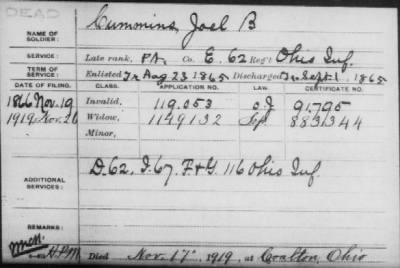 DEAD
NAME OF SOLDIER: Cummins, Joel B
SERVICE: Late rank, Pvt. Co. E, 62 Reg't Ohio Inf.
TERM OF SERVICE: Enlisted Aug 23 1865 Discharged Sept 1, 1865
DATE OF FILING. CLASS. APPLICATION NO. LAW. CERTIFICATE NO.
1866 Nov. 19 Invalid, 119.053 91.795
1919 Nov. 26 Widow, 1149132 883344
Minor,
ADDITIONAL SERVICES: D. 62, I. 67, F & G. 116 Ohio Inf.
REMARKS:
Died Nov. 17, 1919, at Coalton, Ohio